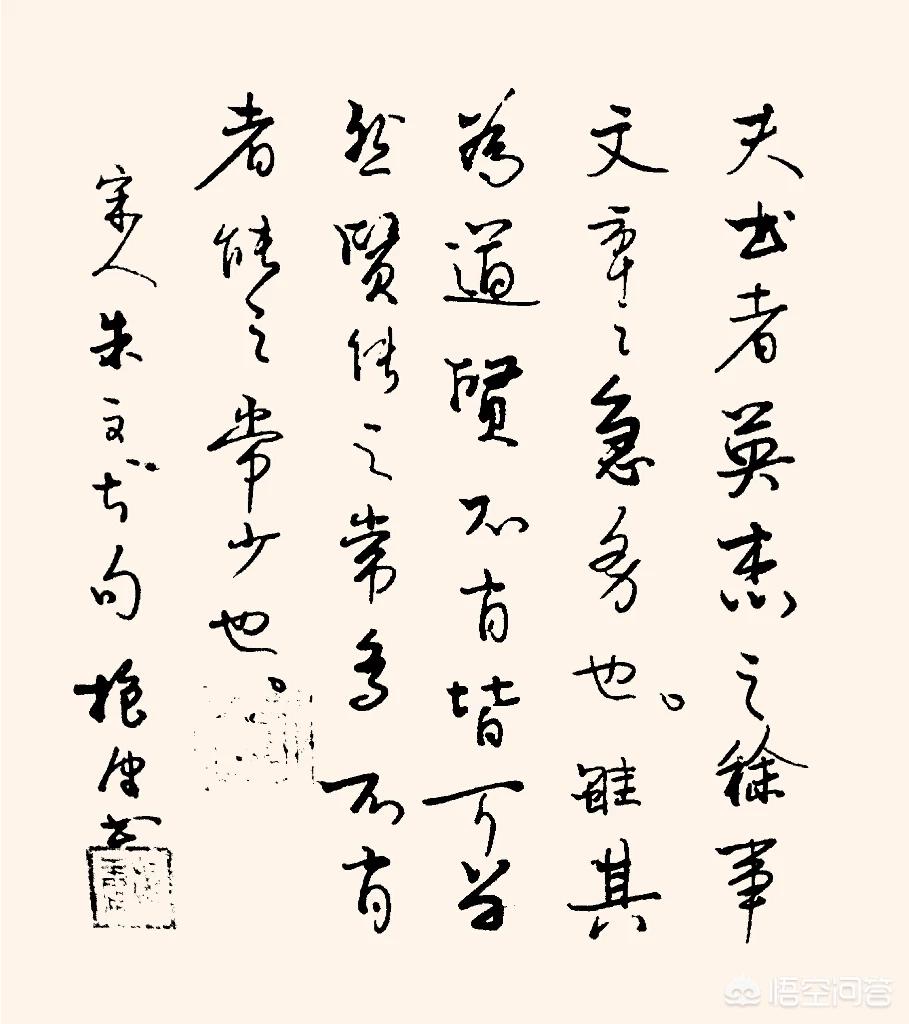 夫书者英杰之馀事
文章之急务也。雖其
為道賢不肖皆可学
然賢能之常多不肖
者能之常少也。
宋人朱文句
悟空问答